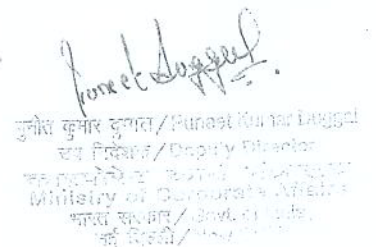 Puneet Duggal
पुनीत कुमार दुग्गल / Puneet Kumar Duggal
उप निदेशक / Deputy Director
Ministry of Corporate Affairs
भारत सरकार / Govt. of India
नई दिल्ली /